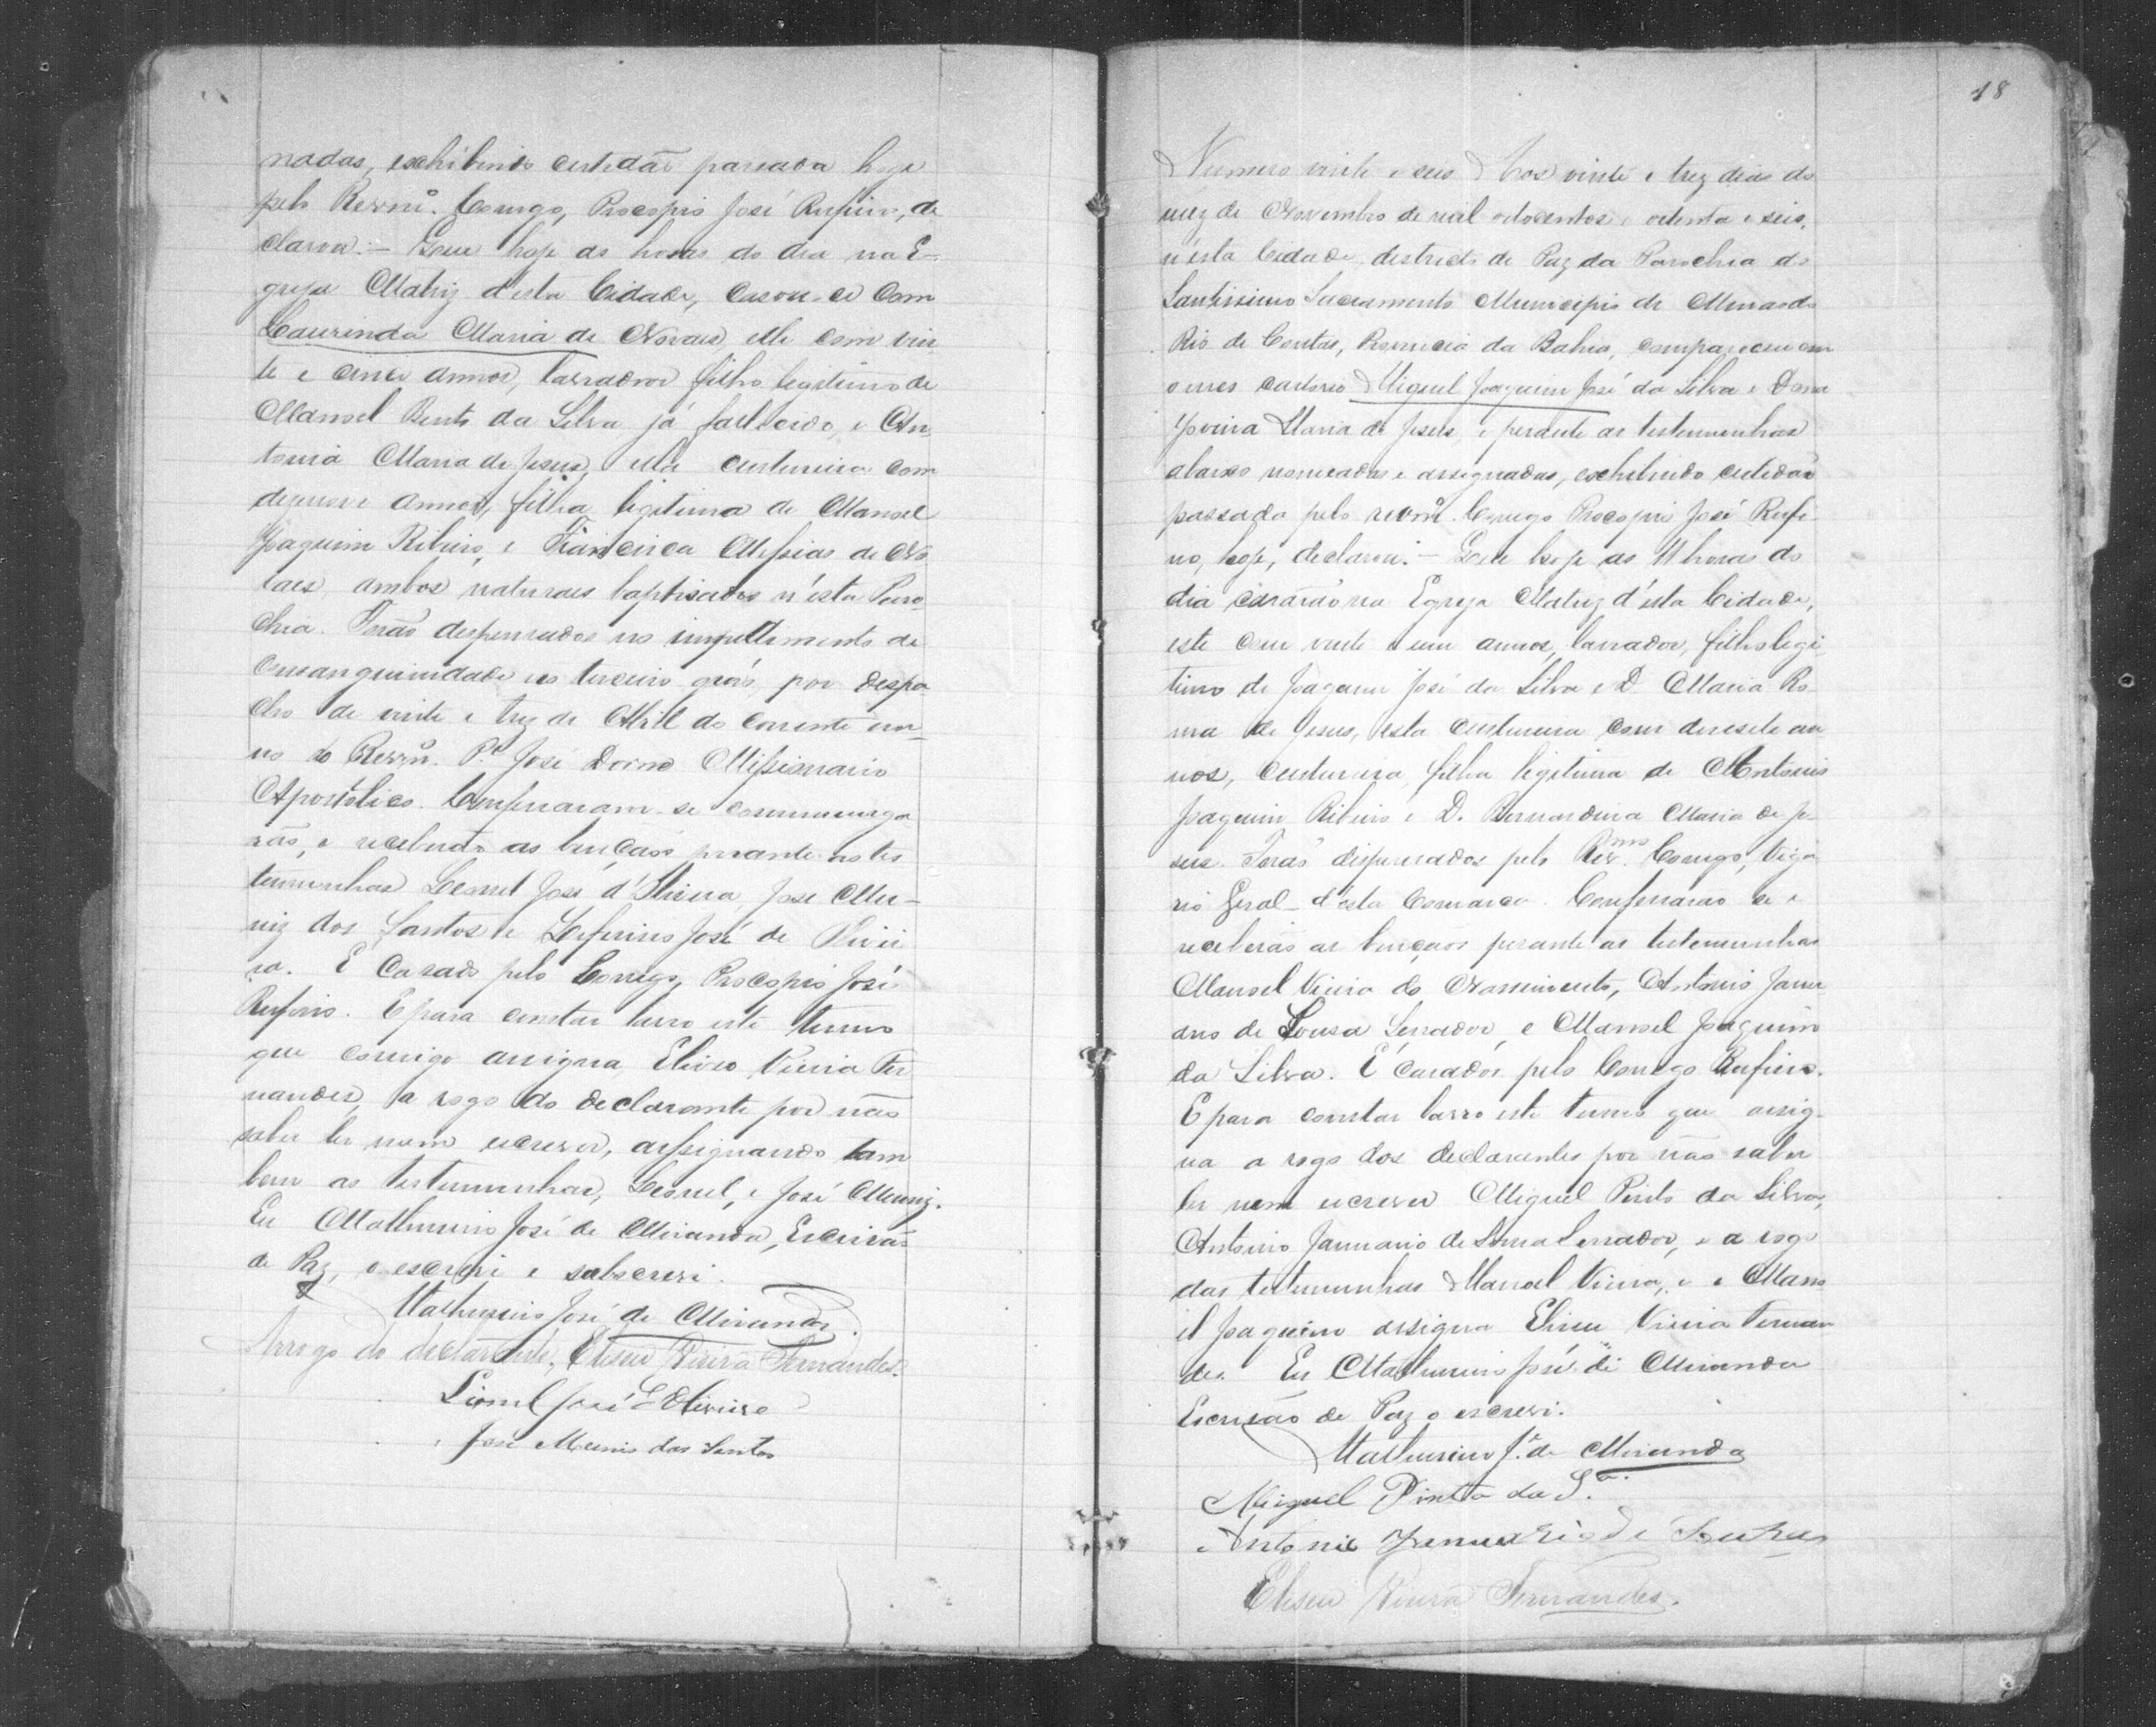 nadas, exhibindo certidão passada hoje
pelo Revmº. Conego, Procopio José Rufino, de
clarou:— Que hoje as horas do dia na E-
greja Matriz d'esta Cidade, casou-se com
Laurinda Maria de Novaes elle com vin
te e cinco annos, lavrador filho legitimo de
Manoel Bento da Silva já fallecido, e An
tonia Maria de Jesus, ella custureira com
desenove annos, filha legitima de Manoel
Joaquim Ribeiro, e Francisca Messias de No
vaes, ambos naturaes baptisados n'esta Paro
chia. Forão despensados no impedimento de
consanguinidade no terceiro gráo, por despa
cho de vinte e trez de Abril do corrente an
no do Revmº. Pe. José Missionario
Apostolico. Confessaram-se communga
rão, e receberão as bençãos perante as tes
temunhas Leonel José d'Oliveira, José Mu-
niz dos Santos e Zeferino José de Olivei
ra. E casado pelo Conego, Procopio José
Rufino. E para constar lavro este termo
que comigo assigna Eliseo Vieira Fer
nandes, a rogo do declarante por não
saber ler nem escrever, assignando tam
bem as testemunhas, Leonel, e José Muniz.
Eu Mathurino José de Miranda, Escrivão
de Paz, o escrevi e subscrevi.
Mathurino José de Miranda.
Arrogo do declarante, Eliseu Vieira Fernandes.
Lionel José d'Oliveira
José Munis dos Santos
18
Numero vinte e seis Aos vinte e trez dias do
mez de Novembro de mil oitocentos e oitenta e seis,
n'esta Cidade, districto de Paz da Parochia do
Santissimo Sacramento Municipio de Minas do
Rio de Contas, Provincia da Bahia, compareceu em
o meu cartorio Miguel Joaquim José da Silva e Dona
Jovina Maria de Jesus, e perante as testemunhas
abaixo nomeadas e assignadas, exhibindo certidão
passada pelo revmº. Conego Procopio José Rufi-
no, hoje, declarou:— Que hoje as 11 horas do
dia casarão na Egreja Matriz d'esta Cidade,
este com vinte e um annos, lavrador, filho legi
timo de Joaquim José da Silva e D. Maria Ro
ma de Jesus, esta custureira com desesete an
nos, custureira, filha legitima de Antonio
Joaquim Ribeiro e D. Bernardina Maria de Je
sus. Forão dispensados pelo Revmo. Conego, Viga
rio Geral d'esta Comarca. Confessarão se e
receberão as bençãos perante as testemunhas
Manoel Vieira do Nascimento, Antonio Janu
ario de Sousa Serrador, e Manoel Joaquim
da Silva. E casados pelo Conego Rufino.
E para constar lavro este termo que assig-
na a rogo dos declarantes por não saber
ler nem escrever Miguel Pinto da Silva,
Antonio Januario de Sousa Serrador, e a rogo
das testemunhas Manoel Vieira, e e Mano
el Joaquim assigna Eliseu Vieira Fernan
des. Eu Mathurino José de Miranda
Escrivão de Paz o escrevi.
Mathurino Jé. de Miranda
Miguel Pinto da Sa.
Antonio Januario de Souza
Eliseu Vieira Fernandes.